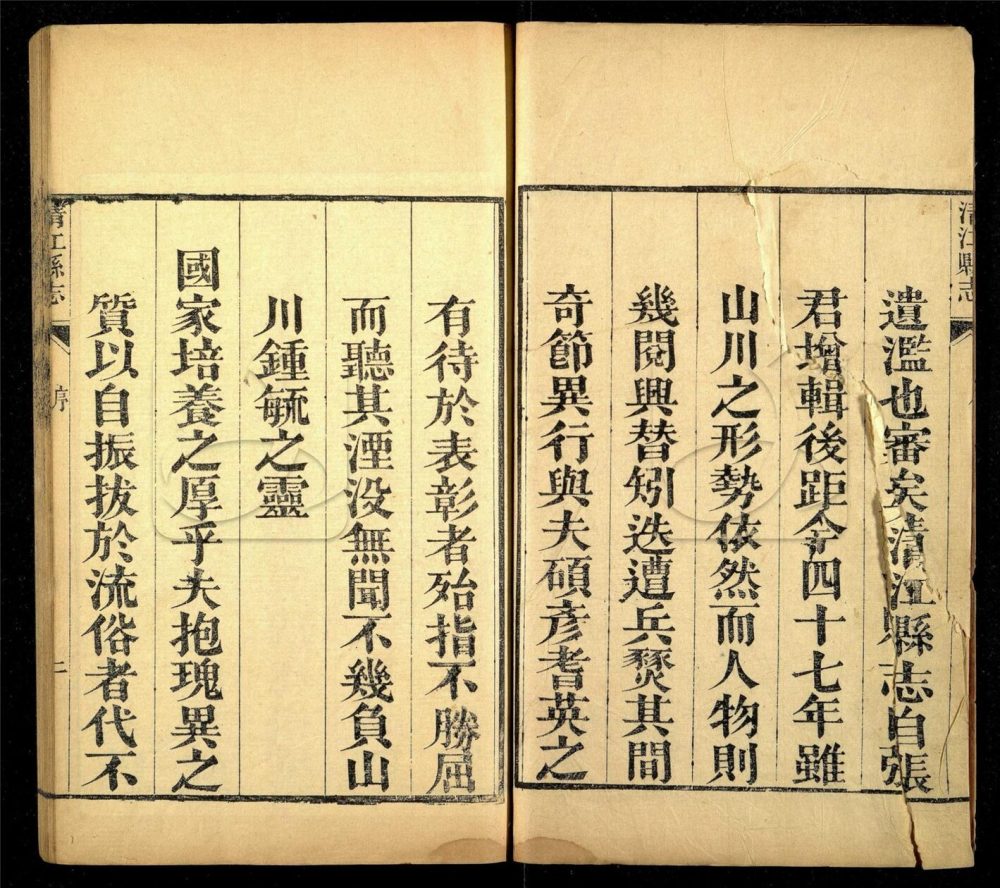 清江縣志
遺濫也審矣清江縣志自張
君增輯後距今四十七年雖
山川之形勢依然而人物則
幾閱興替矧迭遭兵燹其間
奇節異行與夫碩彥耆英之
有待於表彰者殆指不勝屈
而聽其湮没無聞不幾負山
川鍾毓之靈
國家培養之厚乎夫抱瑰異之
質以自振拔於流俗者代不
清江縣志 序 二